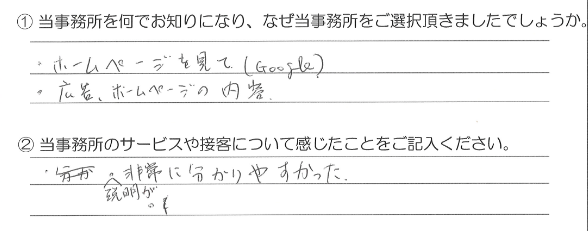 ① 当事務所を何でお知りになり、なぜ当事務所をご選択頂きましたでしょうか。
・ホームページを見て(Google)
・広告、ホームページの内容
② 当事務所のサービスや接客について感じたことをご記入ください。
・非常に分かりやすかった.
説明が